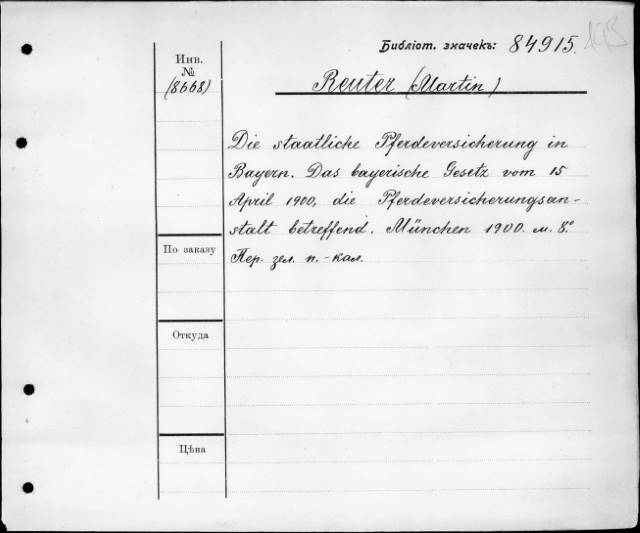 Библіот. значекъ: 84915.
Инв.
№
(8668)
Reuter (Martin)
Die staatliche Pferdeversicherung in
Bayern. Das bayerische Gesetz vom 15
April 1900, die Pferdeversicherungsan-
stalt betreffend. München 1900. м. 8.º
Пер. зел. п.-кал.
По заказу
Откуда
Цѣна